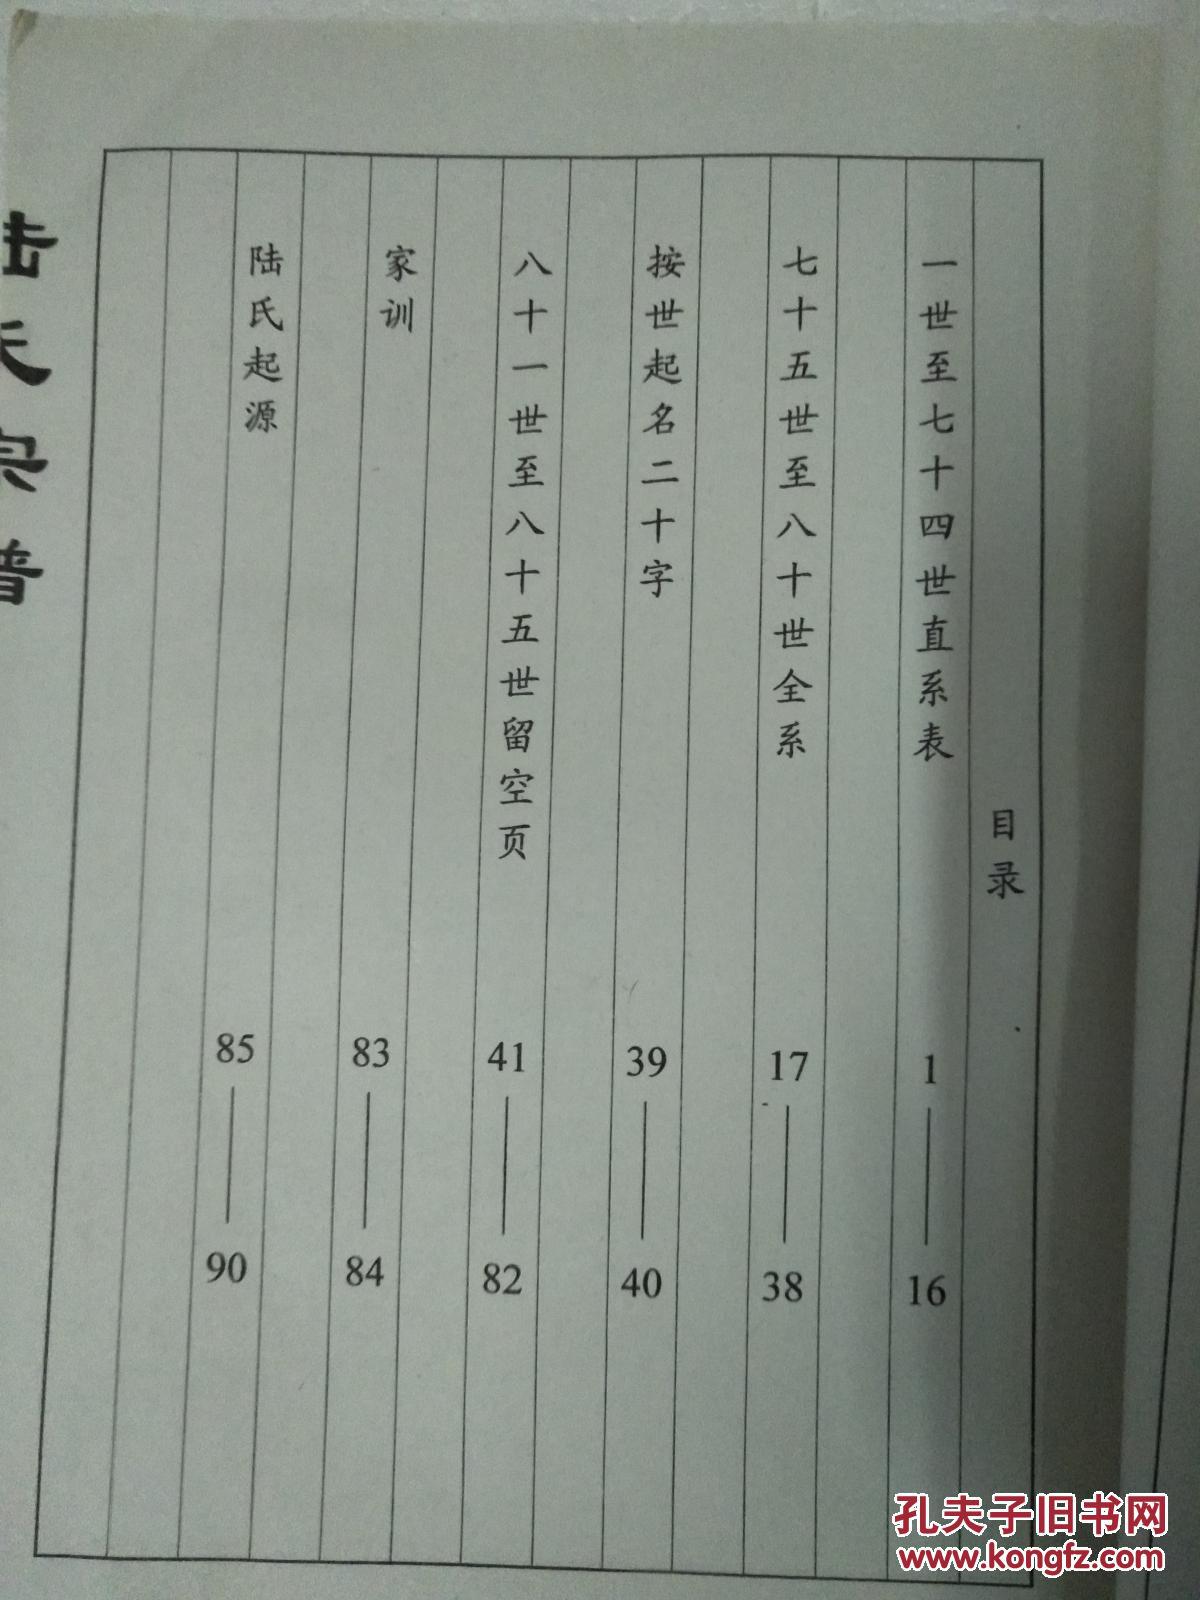 目录
一世至七十四世直系表 1——16
七十五世至八十世全系 17——38
按世起名二十字 39——40
八十一世至八十五世留空页 41——82
家训 83——84
陆氏起源 85——90
陆氏宗谱
孔夫子旧书网
www.kongfz.com